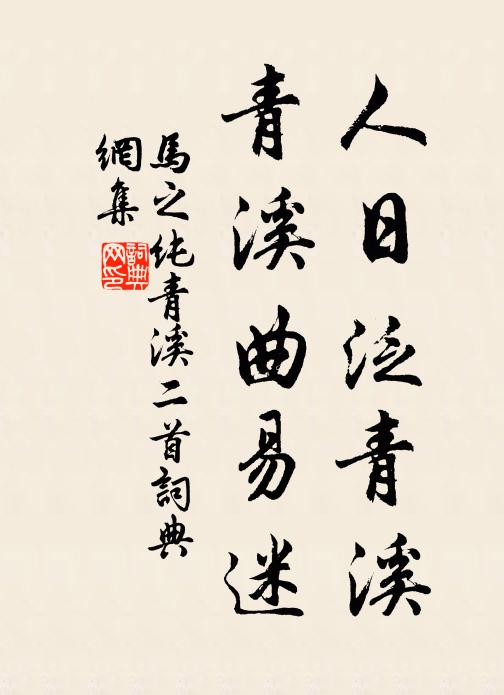 人日泛青溪
青溪曲易迷
馬之纯青溪二首詞典
網集
詞典
网印